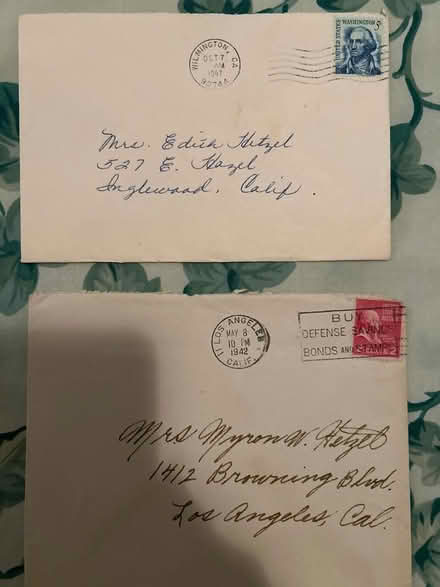 WILMINGTON, CA
OCT 7
AM
90744
UNITED STATES
WASHINGTON
5
Mrs. Edith Hetzel
527 E. Hazel
Inglewood, Calif.
LOS ANGELES
MAY 8
10 PM
1942
CALIF.
BUY
DEFENSE SAVINGS
BONDS AND STAMPS
2
Mrs Myron W. Hetzel
1412 Browning Blvd.
Los Angeles, Cal.